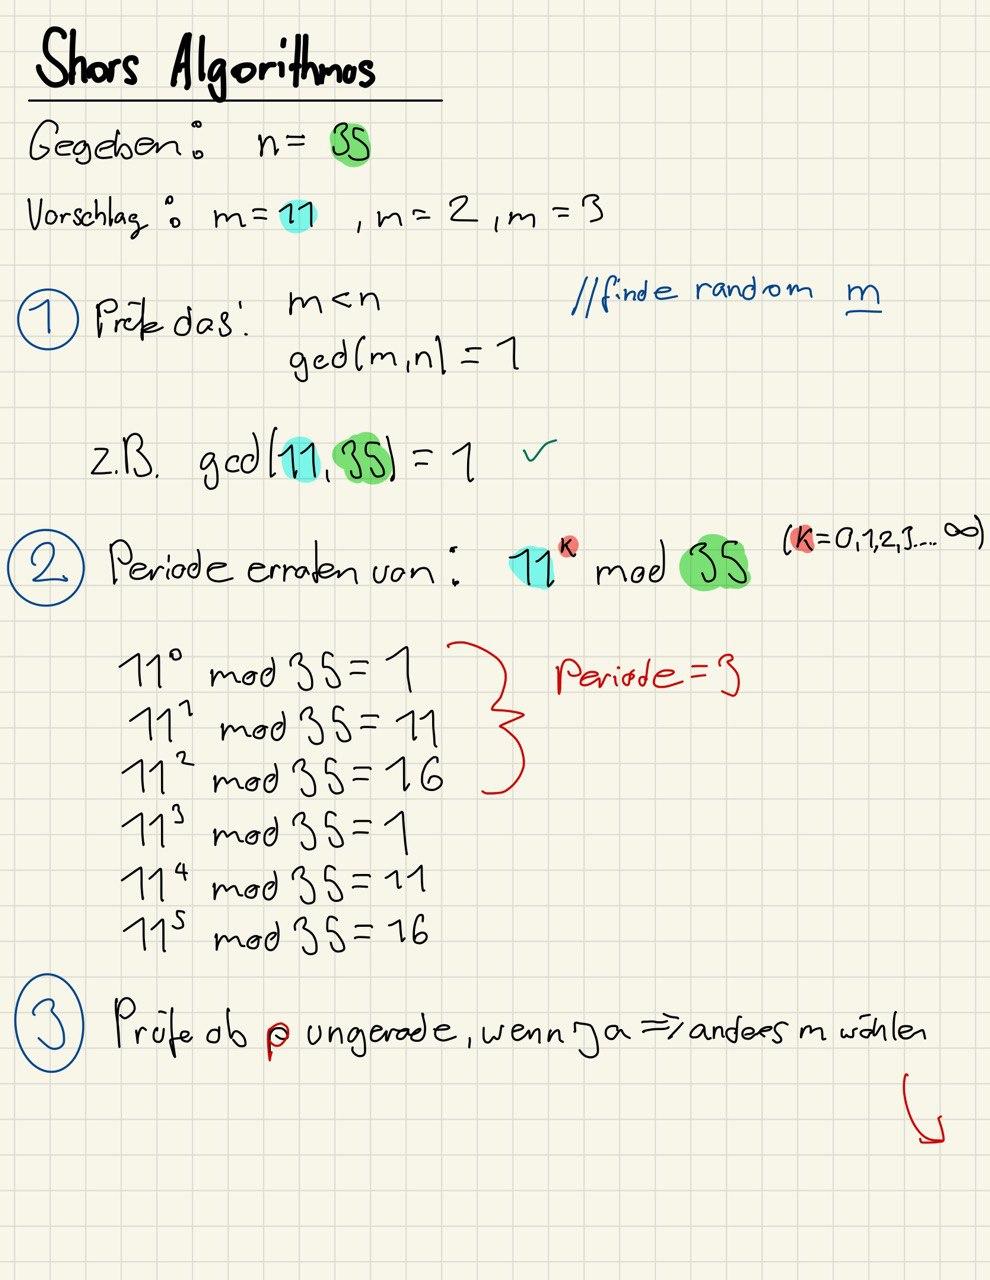 Shors Algorithmos
Gegeben: n = 35
Vorschlag: m = 11, m = 2, m = 3
① Prüfe das: m < n //finde random m
gcd(m,n) = 1
z.B. gcd(11, 35) = 1 ✓
② Periode erraten von: 11^k mod 35 (k=0,1,2,3... ∞)
11^0 mod 35 = 1 Periode = 3
11^1 mod 35 = 11
11^2 mod 35 = 16
11^3 mod 35 = 1
11^4 mod 35 = 11
11^5 mod 35 = 16
③ Prüfe ob p ungerade, wenn ja => anders m wählen